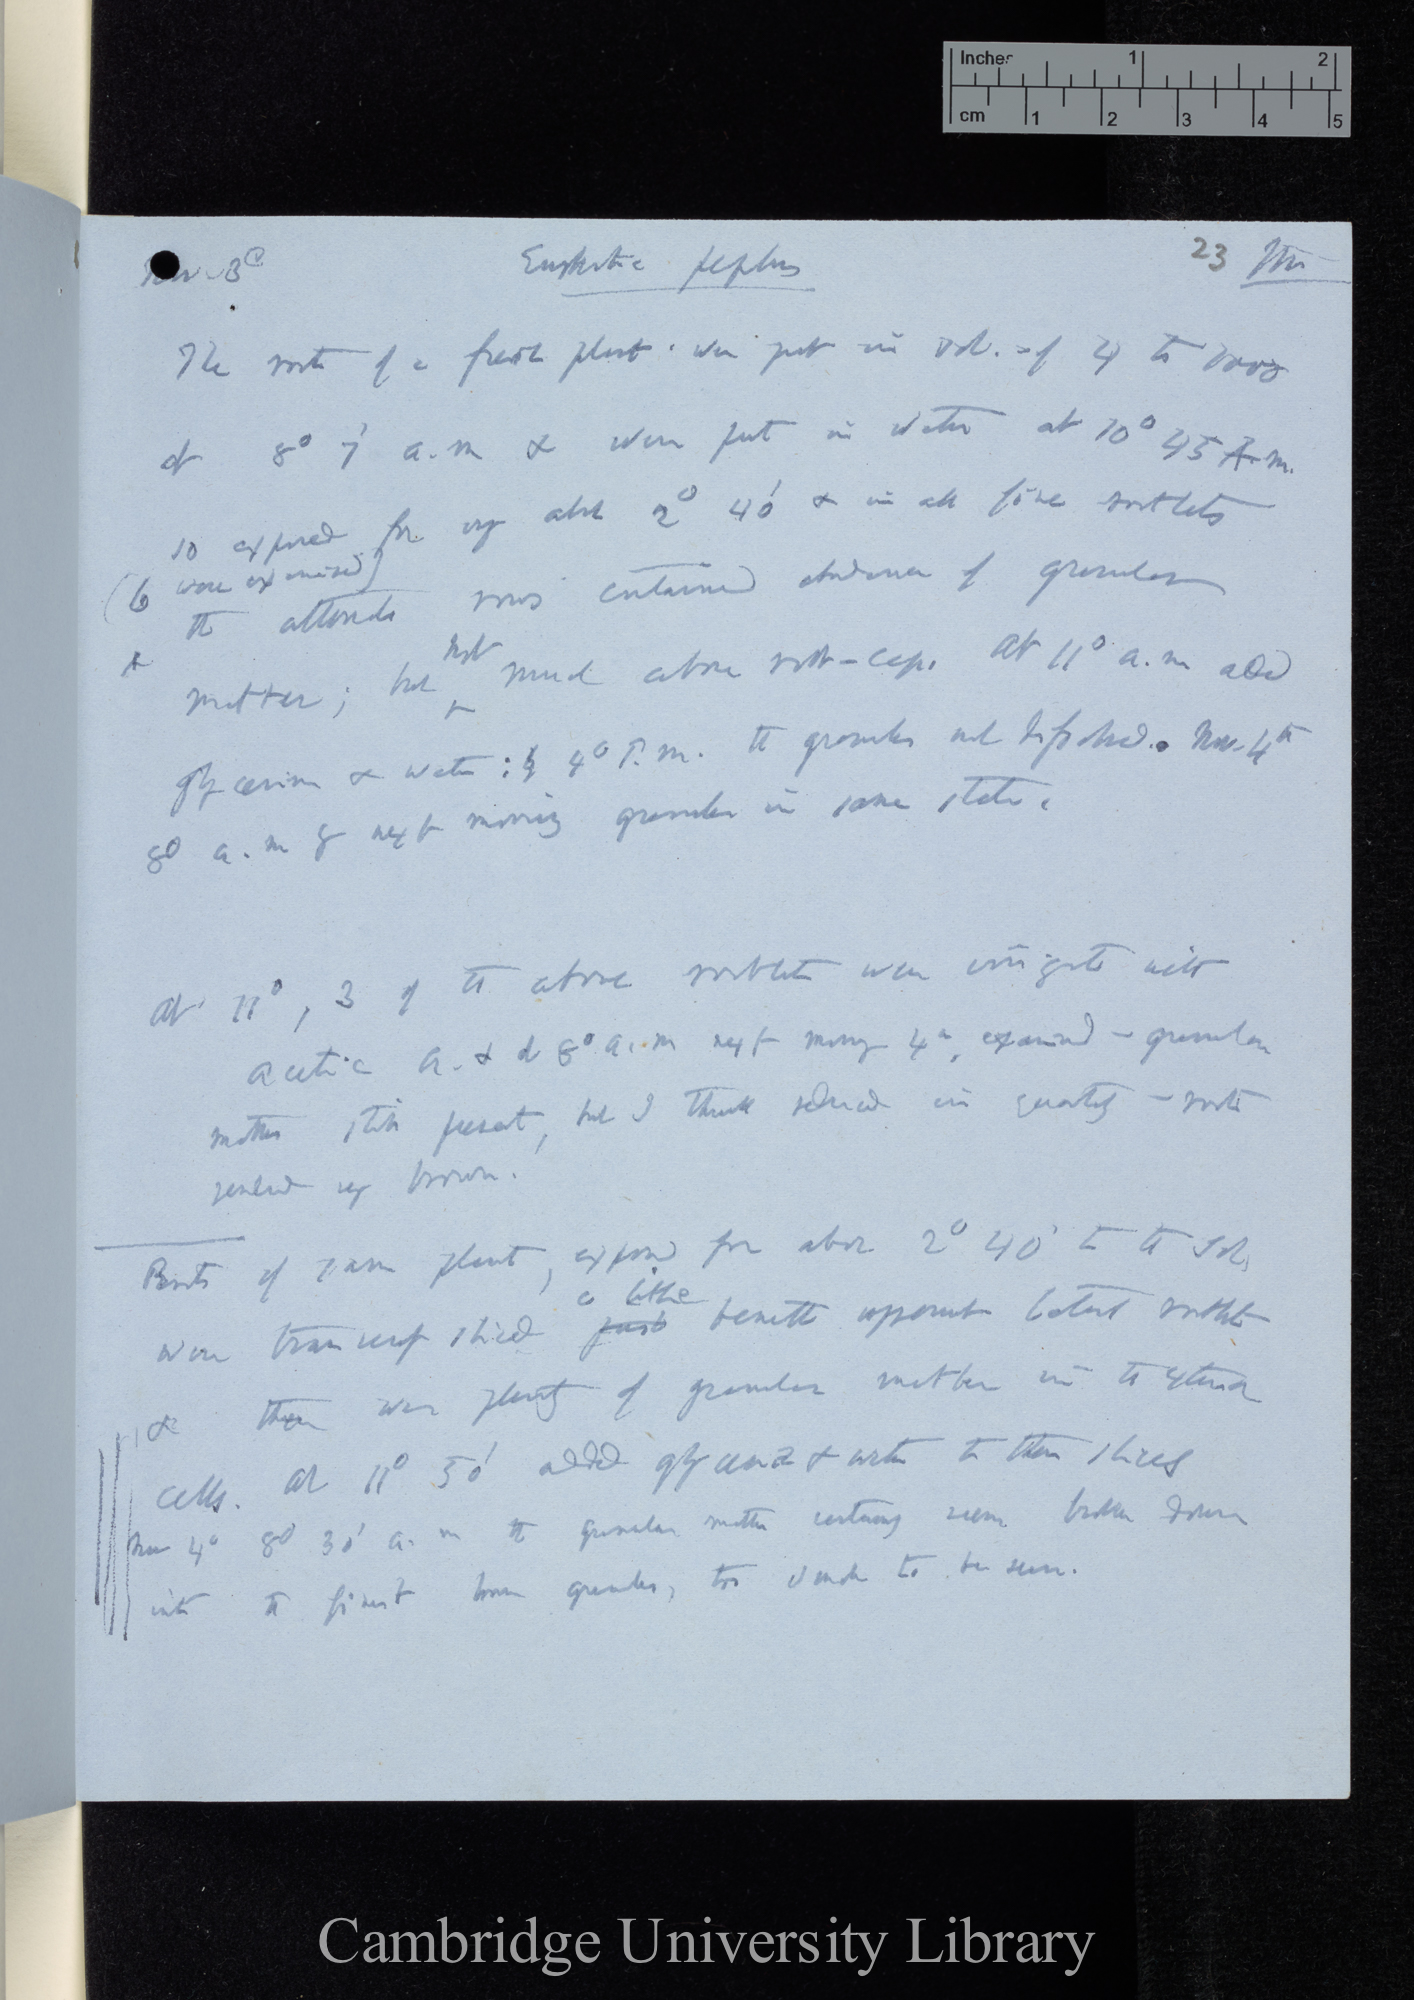 Inches 1 2
cm 1 2 3 4 5
Nov. 3d Euphorbia peplus 23
The roots of a fresh plant were put in sol. of 4 to 1000
at 8° 7' a.m & were put in water at 10° 45 A.m.
so exposed for very about 2° 40' & in all fine rootlets
(6 were examined)
the alternate rows contained abundance of granular
matter; but not much above root-cap. At 11° a.m added
glycerine & water: 4° P.m. the granules not dissolved. Nov. 4th
8° a.m of next morning granules in same state.
At 11°, 3 of the above rootlets were irrigated with
acetic a. & at 8° a.m next morning 4th, examined — granular
matter still present, but I think reduced in quantity — roots
rendered very brown.
Roots of same plant, exposed for about 2° 40' to the sol,
were transversely sliced just a little beneath uppermost lateral rootlets
& there was plenty of granular matter in the exterior
cells. At 11° 50' added glycerine & water to these slices
Nov 4th 8° 30' a.m the granular matter certainly seems broken down
into the finest brown granules, too small to be seen.
Cambridge University Library